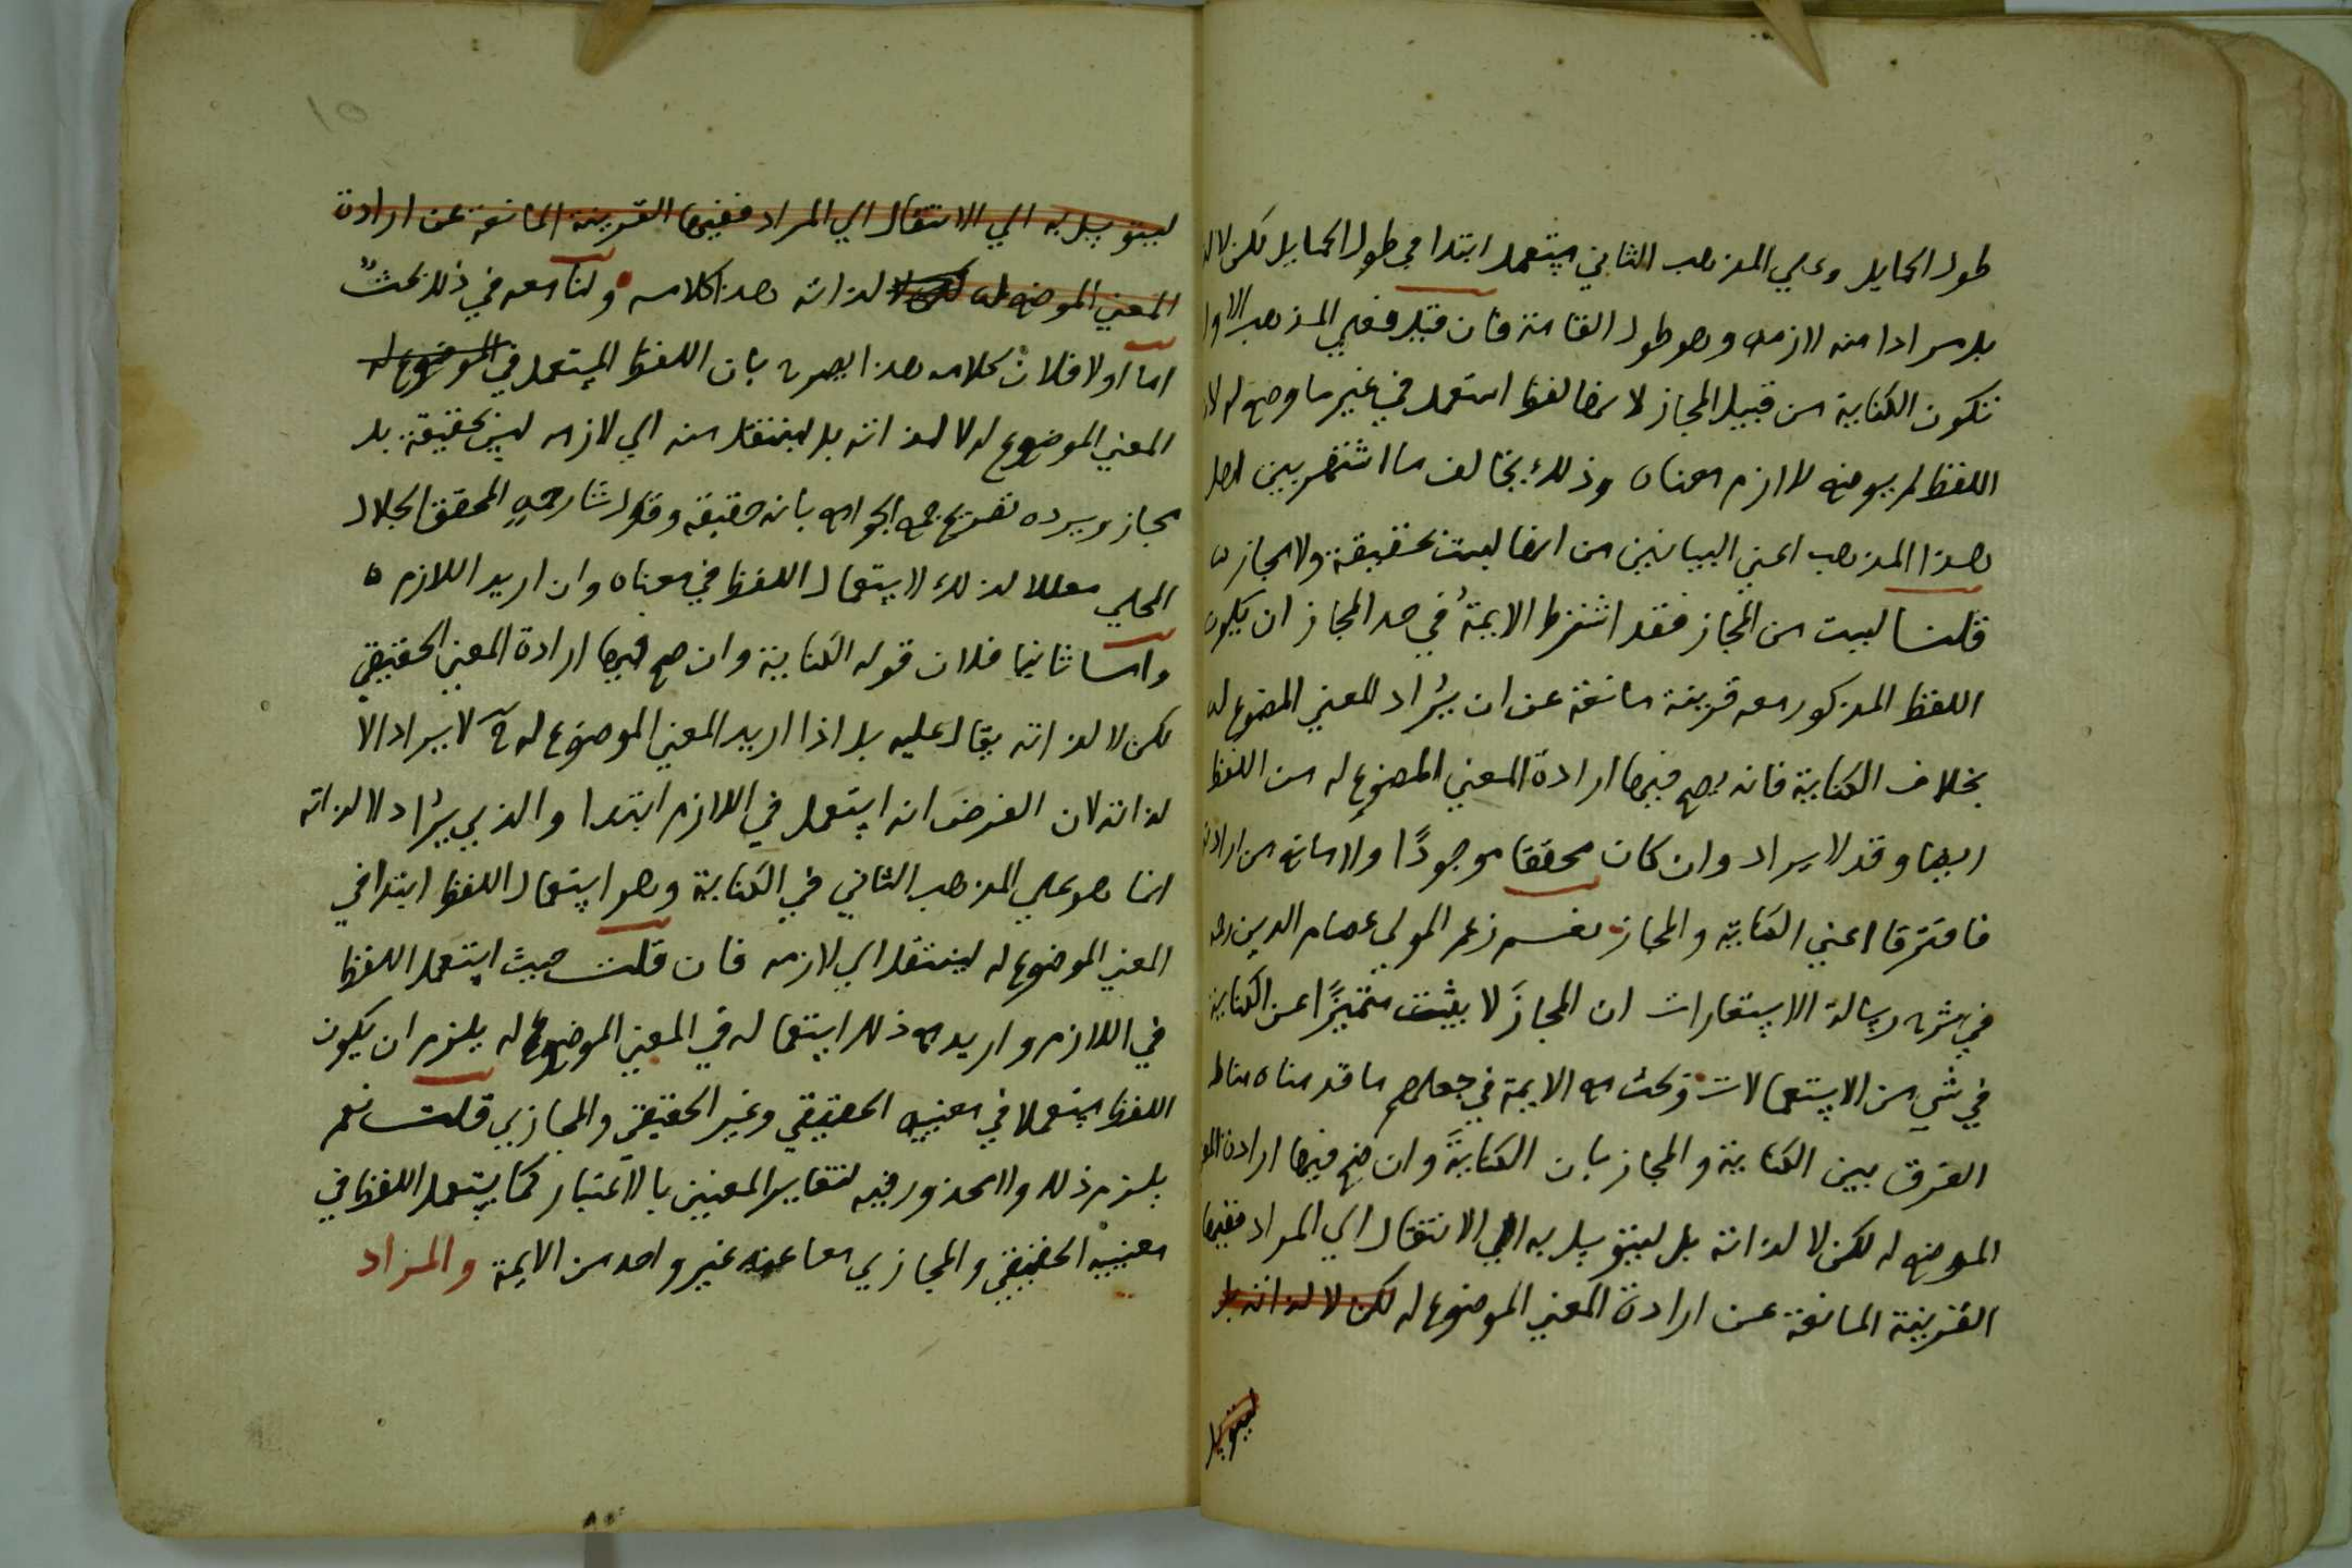 طول الحمايل وعلي المذهب الثاني يستعمل ابتدا في طول الحمايل لكن لا لذ
بل مرادا منه لازمه وهو طول القامة فان قيل فعلي المذهب الاول
تكون الكناية من قبيل المجاز لانها لفظ استعمل في غير ما وضع له لان
اللفظ لم يوضع للازم معناه وذلك يخالف ما اشتهر بين اهل
هذا المذهب اعني البيانيين من انها ليست حقيقة ولا مجاز
قلنا ليست من المجاز فقد اشترط الايمة في حد المجاز ان يكون
اللفظ المذكور معه قرينة مانعة عن ان يراد المعني الموضوع له
بخلاف الكناية فانه يصح فيها ارادة المعني الموضوع له من اللفظ
ايضا وقد لا يراد وان كان محققا موجودًا ولا مانع من ارادته
فافترقا اعني الكناية والمجاز نعم زعم المولي عصام الدين رحه
في شرح رسالة الاستعارات ان المجازَ لا يثبت متميزًا عن الكناية
في شي من الاستعمالات وبحث مع الايمة في جعلهم ما قدمناه مناط
الفرق بين الكناية والمجاز بان الكنايةَ وان صح فيها ارادة المو
الموضوع له لكن لا لذاته بل ليتوسل به الي الانتقال الي المراد ففيها
القرينة المانعة عن ارادة المعني الموضوع له لكن لا لذاته بل
ليتوسل
ليتوسل به الي الانتقال الي المراد ففيها القرينة المانعة عن ارادة
المعني الموضوع له لكن لا لذاته هذا كلامه ولنا معه في ذلك بحث
اما اولا فلان كلامه هذا يصرح بان اللفظ المستعمل في الموضوع له
المعني الموضوع له لا لذاته بل لينتقل منه الي لازمه ليس بحقيقة بل
مجاز ويرده تصريح جمع الجوامع بانه حقيقة وقول شارحه المحقق الجلال
المحلي معللا لذلك لاستعمال اللفظ في معناه وان اريد اللازم ه
واما ثانيا فلان قوله الكناية وان صح فيها ارادة المعني الحقيقي
لكن لا لذاته يقال عليه بل اذا اريد المعني الموضوع له ح لا يراد الا
لذاته لان الفرض انه استعمل في اللازم ابتدا والذي يراد لا لذاته
انما هو علي المذهب الثاني في الكناية وهو استعمال اللفظ ابتدا في
المعني الموضوع له لينتقل الي لازمه فان قلت حيث استعمل اللفظ
في اللازم واريد مع ذلك استعماله في المعني الموضوع له يلزم ان يكون
اللفظ مستعملا في معنييه الحقيقي وغير الحقيقي والمجازي قلت نعم
يلزم ذلك ولا محذور فيه لتغاير المعنيين بالاعتبار كما يستعمل اللفظ في
معنييه الحقيقي والمجازي معا عند غير واحد من الايمة والمراد